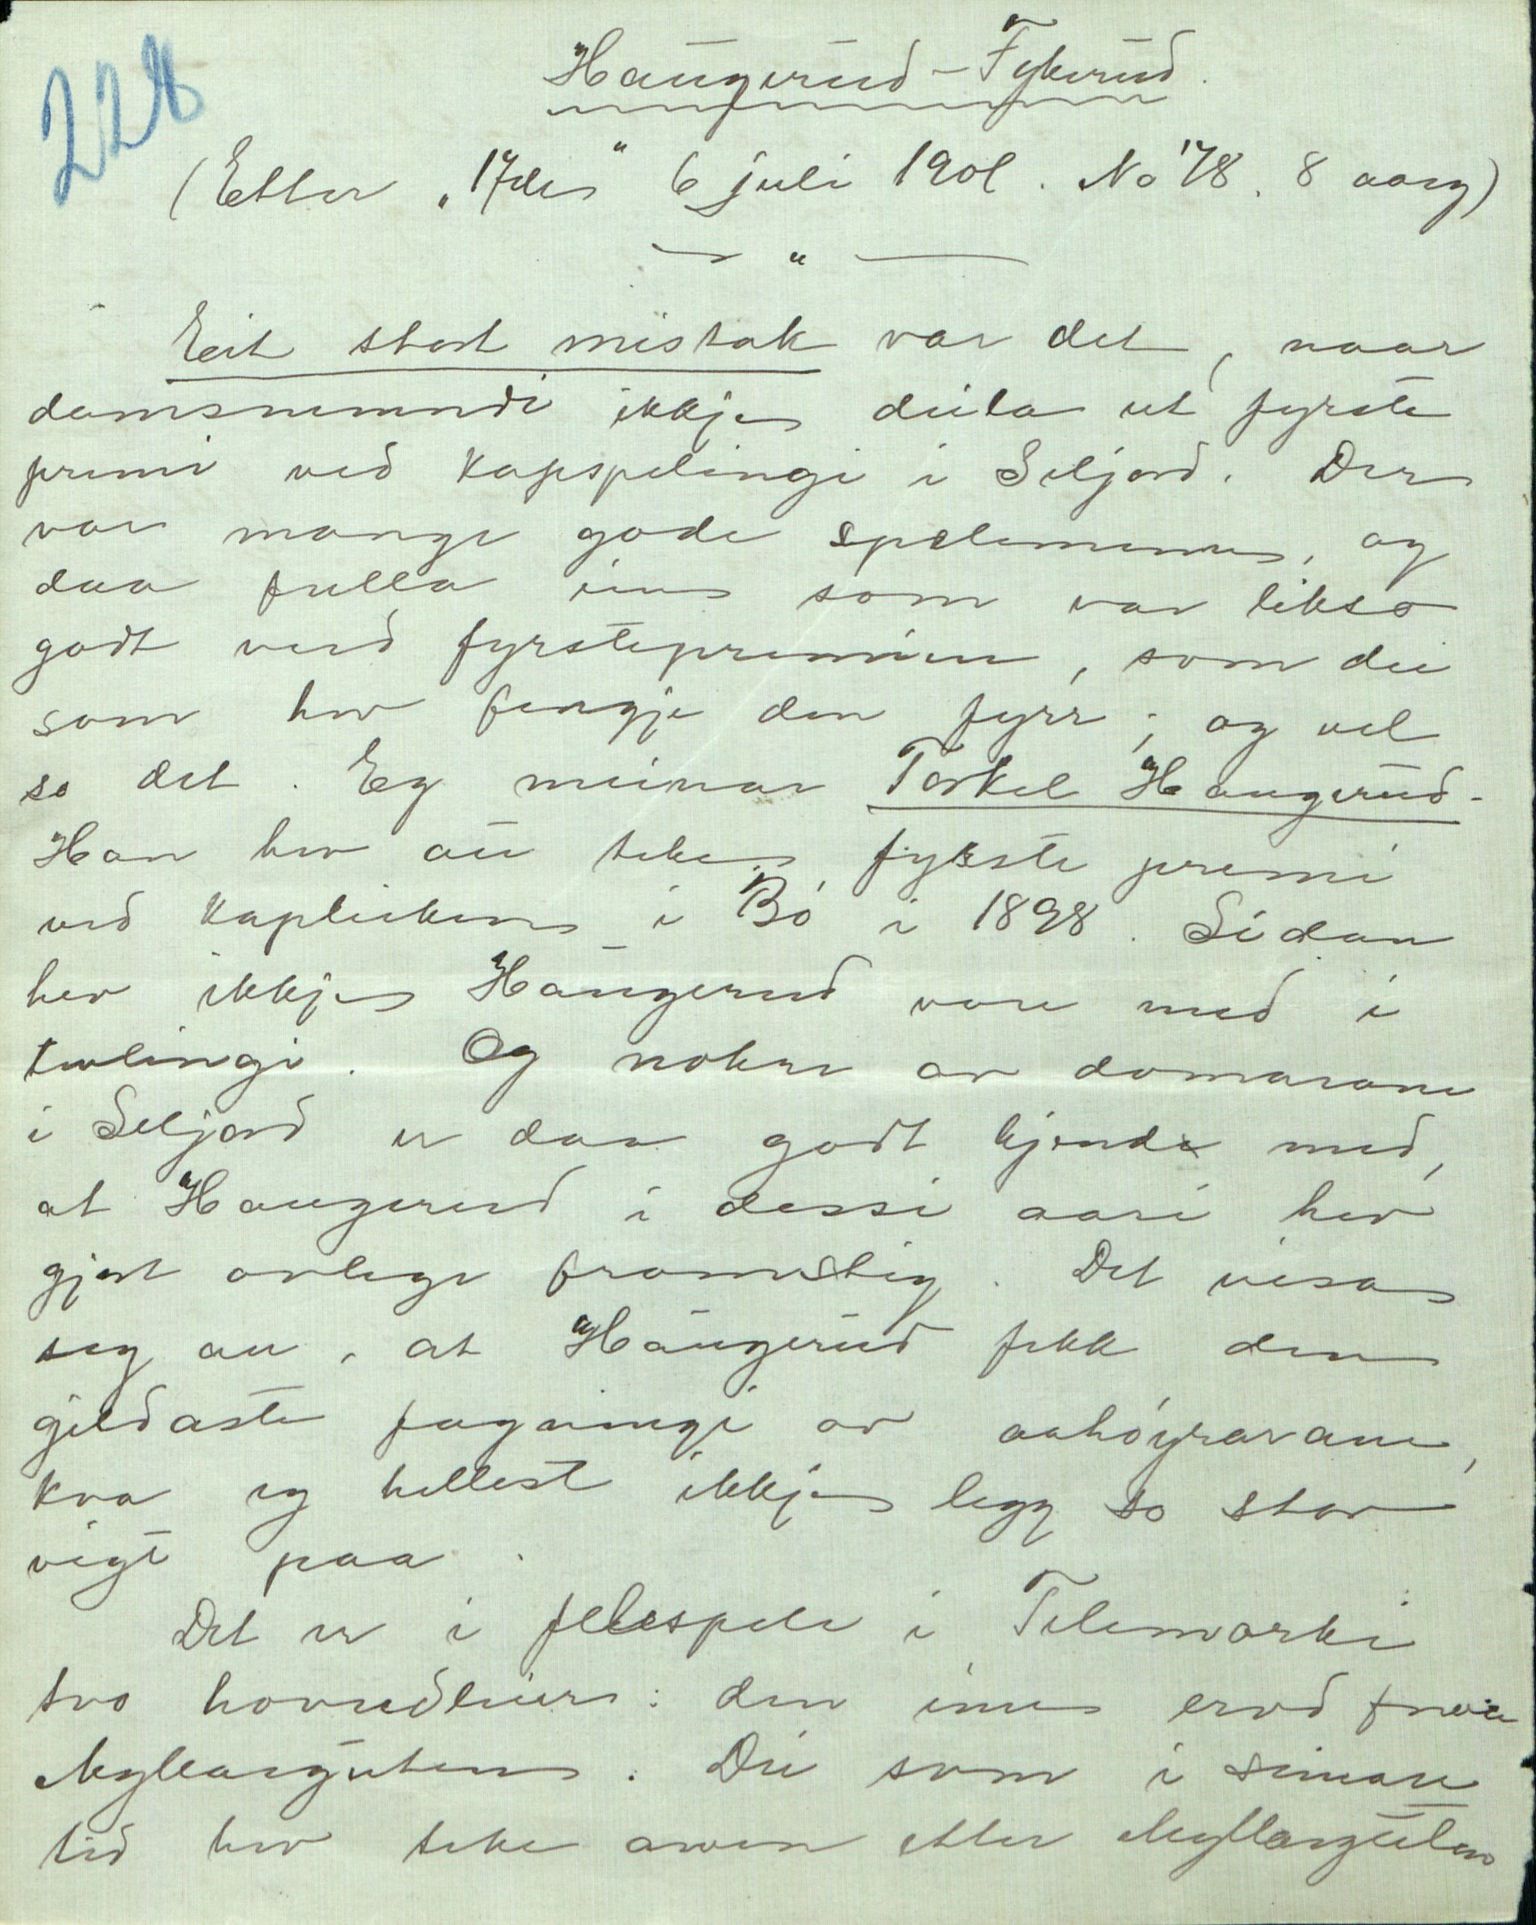 228
Haugerud - Fykerud.
(Etter „17de" 6 juli 1901. No 78. 8 aarg)
— " —
Eit stort mistak var det, naar
domsnemndi ikkje deila ut fyrste
premi ved kapspelingi i Seljord. Der
var mange gode spelemenn, og
daa fulla ein som var likso
godt verd fyrstepremien, som dei
som hev fengje den fyrr; og vel
so det. Eg meinar Torkel Haugerud.
Han hev au teke fyrste premi
ved kapleiken i Bó i 1898. Sidan
hev ikkje Haugerud vore med i
tevlingi. Og nokre av domarane
i Seljord er daa godt kjende med,
at Haugerud i dessi aari hev
gjort ovlege framstig. Det visa
seg au, at Haugerud fekk den
gjildaste fagningi av aahøyrarane,
kva eg hellest ikkje legg so stor
vigt paa.
Det er i felespele i Telemarki
tvo hovudleier: den eine ervd fraa
Myllarguten. Dei som i seinare
tid hev teke arven etter Myllarguten